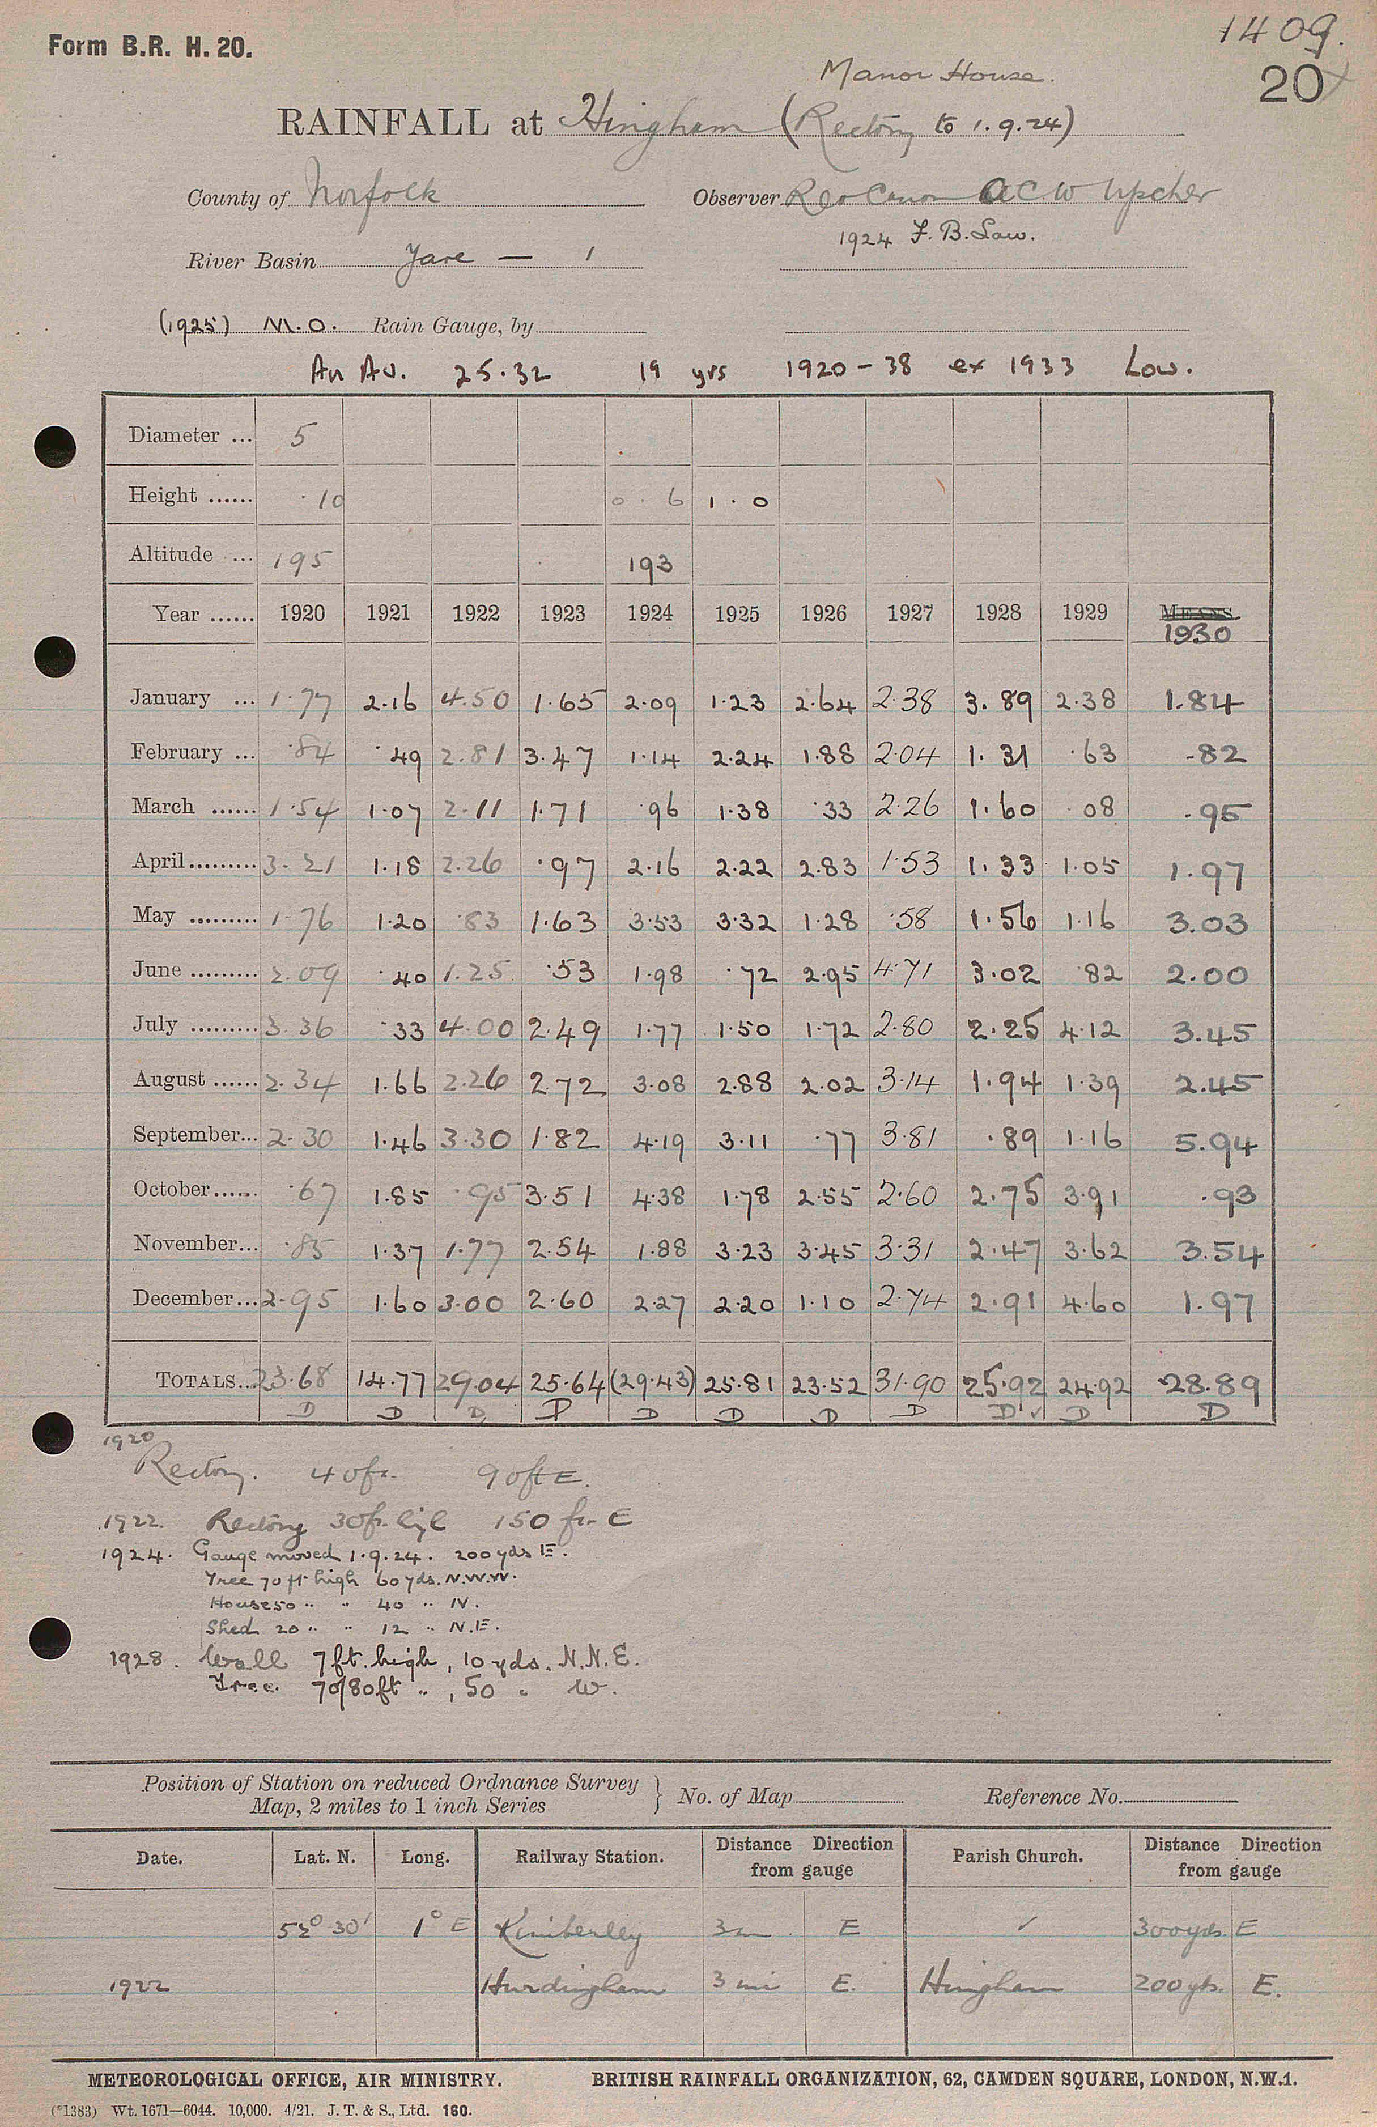 1409.
Form B.R. H. 20.
20
Manor House.
RAINFALL at Hingham (Rectory to 1.9.24)
County of Norfolk Observer Rev Canon A C W Upcher
1924 F. B. Law.
River Basin Yare — 1
(1925) M.O. Rain Gauge, by
An Av. 25.32 19 yrs 1920-38 ex 1933 Low.
Diameter ... 5
Height ...... ·10 0·6 1·0
Altitude ... 195 193
Year ...... 1920 1921 1922 1923 1924 1925 1926 1927 1928 1929 MEANS
1930
January ... 1·77 2·16 4·50 1·65 2·09 1·23 2·64 2·38 3·89 2·38 1·84
February ... ·84 ·49 2·81 3·47 1·14 2·24 1·88 2·04 1·31 ·63 ·82
March ...... 1·54 1·07 2·11 1·71 ·96 1·38 ·33 2·26 1·60 ·08 ·95
April ......... 3·21 1·18 2·26 ·97 2·16 2·22 2·83 1·53 1·33 1·05 1·97
May ......... 1·76 1·20 ·83 1·63 3·53 3·32 1·28 ·58 1·56 1·16 3·03
June ......... 2·09 ·40 1·25 ·53 1·98 ·72 2·95 4·71 3·02 ·82 2·00
July ......... 3·36 ·33 4·00 2·49 1·77 1·50 1·72 2·80 2·25 4·12 3·45
August ...... 2·34 1·66 2·26 2·72 3·08 2·88 2·02 3·14 1·94 1·39 2·45
September... 2·30 1·46 3·30 1·82 4·19 3·11 ·77 3·81 ·89 1·16 5·94
October...... ·67 1·85 ·95 3·51 4·38 1·78 2·55 2·60 2·75 3·91 ·93
November... ·85 1·37 1·77 2·54 1·88 3·23 3·45 3·31 2·47 3·62 3·54
December... 2·95 1·60 3·00 2·60 2·27 2·20 1·10 2·74 2·91 4·60 1·97
TOTALS... 23·68 14·77 29·04 25·64 (29·43) 25·81 23·52 31·90 25·92 24·92 28·89
D D D D D D D D D ✓ D D
1920
Rectory. 40ft. 90ft E.
1922. Rectory 30ft. high 150 ft. E
1924. Gauge moved 1.9.24. 200 yds E.
Tree 70 ft high 60 yds. N.W.W.
House 50 " " 40 " N.
Shed 20 " " 12 " N.E.
1928. Wall 7 ft. high, 10 yds. N.N.E.
Tree 70/80ft ", 50 " W.
Position of Station on reduced Ordnance Survey
Map, 2 miles to 1 inch Series } No. of Map Reference No.
Date. Lat. N. Long. Railway Station. Distance Direction from gauge Parish Church. Distance Direction from gauge
52° 30′ 1° E Kimberley 3m. E ✓ 300yds. E
1922 Hardingham 3 mi E. Hingham 200 yds. E.
METEOROLOGICAL OFFICE, AIR MINISTRY. BRITISH RAINFALL ORGANIZATION, 62, CAMDEN SQUARE, LONDON, N.W.1.
(*1383) Wt. 1671—6044. 10,000. 4/21. J. T. & S., Ltd. 160.